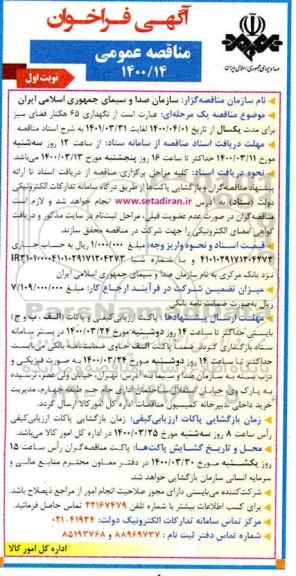 آگهی فراخوان
مناقصه عمومی
۱۴۰۰/۱۴
صدا و سیمای جمهوری اسلامی ایران
نوبت اول
نام سازمان مناقصه‌گزار: سازمان صدا و سیمای جمهوری اسلامی ایران
موضوع مناقصه یک مرحله‌ای: عبارت است از نگهداری ۶۵ هکتار فضای سبز
برای مدت یکسال از تاریخ ۱۴۰۰/۰۴/۰۱ لغایت ۱۴۰۱/۰۳/۳۱ به شرح اسناد مناقصه
مهلت دریافت اسناد مناقصه از سامانه ستاد: از ساعت ۱۲ روز سه‌شنبه
مورخ ۱۴۰۰/۰۳/۱۱ حداکثر تا ساعت ۱۶ روز پنجشنبه مورخ ۱۴۰۰/۰۳/۱۳ می‌باشد.
نحوه دریافت اسناد: کلیه مراحل برگزاری مناقصه از دریافت اسناد تا ارائه
پیشنهاد مناقصه‌گران و بازگشایی پاکت‌ها از طریق درگاه سامانه تدارکات الکترونیکی
دولت (ستاد) به آدرس www.setadiran.ir انجام خواهد شد و لازم است
مناقصه‌گران در صورت عدم عضویت قبلی، مراحل ثبت‌نام در سایت مذکور و دریافت
گواهی امضای الکترونیکی را جهت شرکت در مناقصه محقق سازند.
قیمت اسناد و نحوه واریز وجه: مبلغ ۱/۰۰۰/۰۰۰ ریال به حساب جاری
۴۱۰۱۰۲۹۱۷۱۲۰۴۲۷۳ و با شماره شبا
نزد بانک مرکزی به نام سازمان صدا و سیمای جمهوری اسلامی ایران
میزان تضمین شرکت در فرآیند ارجاع کار: مبلغ ۷/۱۰۹/۰۰۰/۰۰۰
ریال به‌صورت ضمانت نامه بانکی
مهلت ارسال پیشنهادها: پاکت ارزیابی کیفی و پاکات (الف - ب و ج)
بایستی حداکثر تا ساعت ۱۴ روز دوشنبه مورخ ۱۴۰۰/۰۳/۲۴ در بستر سامانه
ستاد بارگذاری گردد. ضمنا پاکت الف حاوی ضمانتنامه بانکی می‌بایست
حداکثر تا ساعت ۱۴ روز دوشنبه مورخ ۱۴۰۰/۰۳/۲۴ به صورت فیزیکی و
دربسته به سازمان صدا و سیما به آدرس تهران، خیابان ولیعصر، نرسیده
به پارک وی خیابان استقلال، ساختمان اداری جام جم طبقه چهارم، مدیریت
خرید داخلی، دبیرخانه کمیسیون مناقصات اداره کل امور کالا ارسال گردد.
زمان بازگشایی پاکات ارزیابی کیفی: زمان بازگشایی پاکات ارزیابی کیفی
رأس ساعت ۸ روز سه‌شنبه مورخ ۱۴۰۰/۰۳/۲۵ در اداره کل امور کالا می‌باشد.
محل و تاریخ گشایش پاکت‌ها: پاکت مناقصه‌گران رأس ساعت ۱۵
روز یکشنبه مورخ ۱۴۰۰/۰۳/۳۰ در دفتر معاون محترم منابع مالی و
سرمایه انسانی سازمان بازگشایی خواهد شد.
شرکت‌کننده می‌بایستی دارای مجوز صلاحیت انجام امور از مراجع ذیصلاح باشد.
برای کسب اطلاعات بیشتر با شماره تلفن ۲۲۱۶۷۴۷۹ تماس حاصل فرمایید.
مرکز تماس سامانه تدارکات الکترونیک دولت: ۴۱۹۳۴-۰۲۱
شماره تماس دفتر ثبت نام: ۸۸۹۶۹۷۳۷ و ۸۵۱۹۳۷۶۸
اداره کل امور کالا